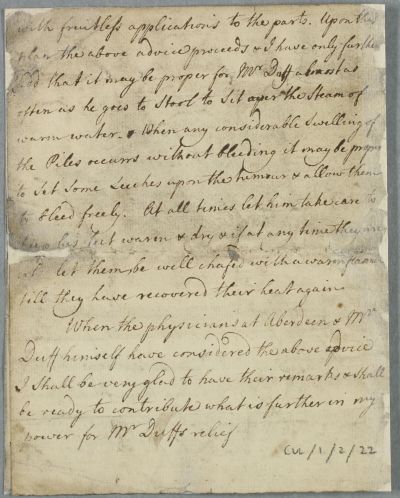 with fruitless applications to the parts. Upon this
plan the above advice proceeds & I have only further
add that it may be proper for Mr Duff almost as
often as he goes to Stool to Sit over the Steam of
warm water. & When any considerable Swelling of
the Piles occurrs without bleeding it may be proper
to Set Some Leeches upon the tumour & allow them
to bleed freely. At all times let him take care to
his feet warm & dry & if at any time they are
let them be well chafed with a warm flannel
till they have recovered their heat again
When the physicians at Aberdeen & Mr
Duff himself have considered the above advice
I shall be very glad to have their remarks & shall
be ready to contribute what is further in my
power for Mr Duffs relief
CUL/1/2/22